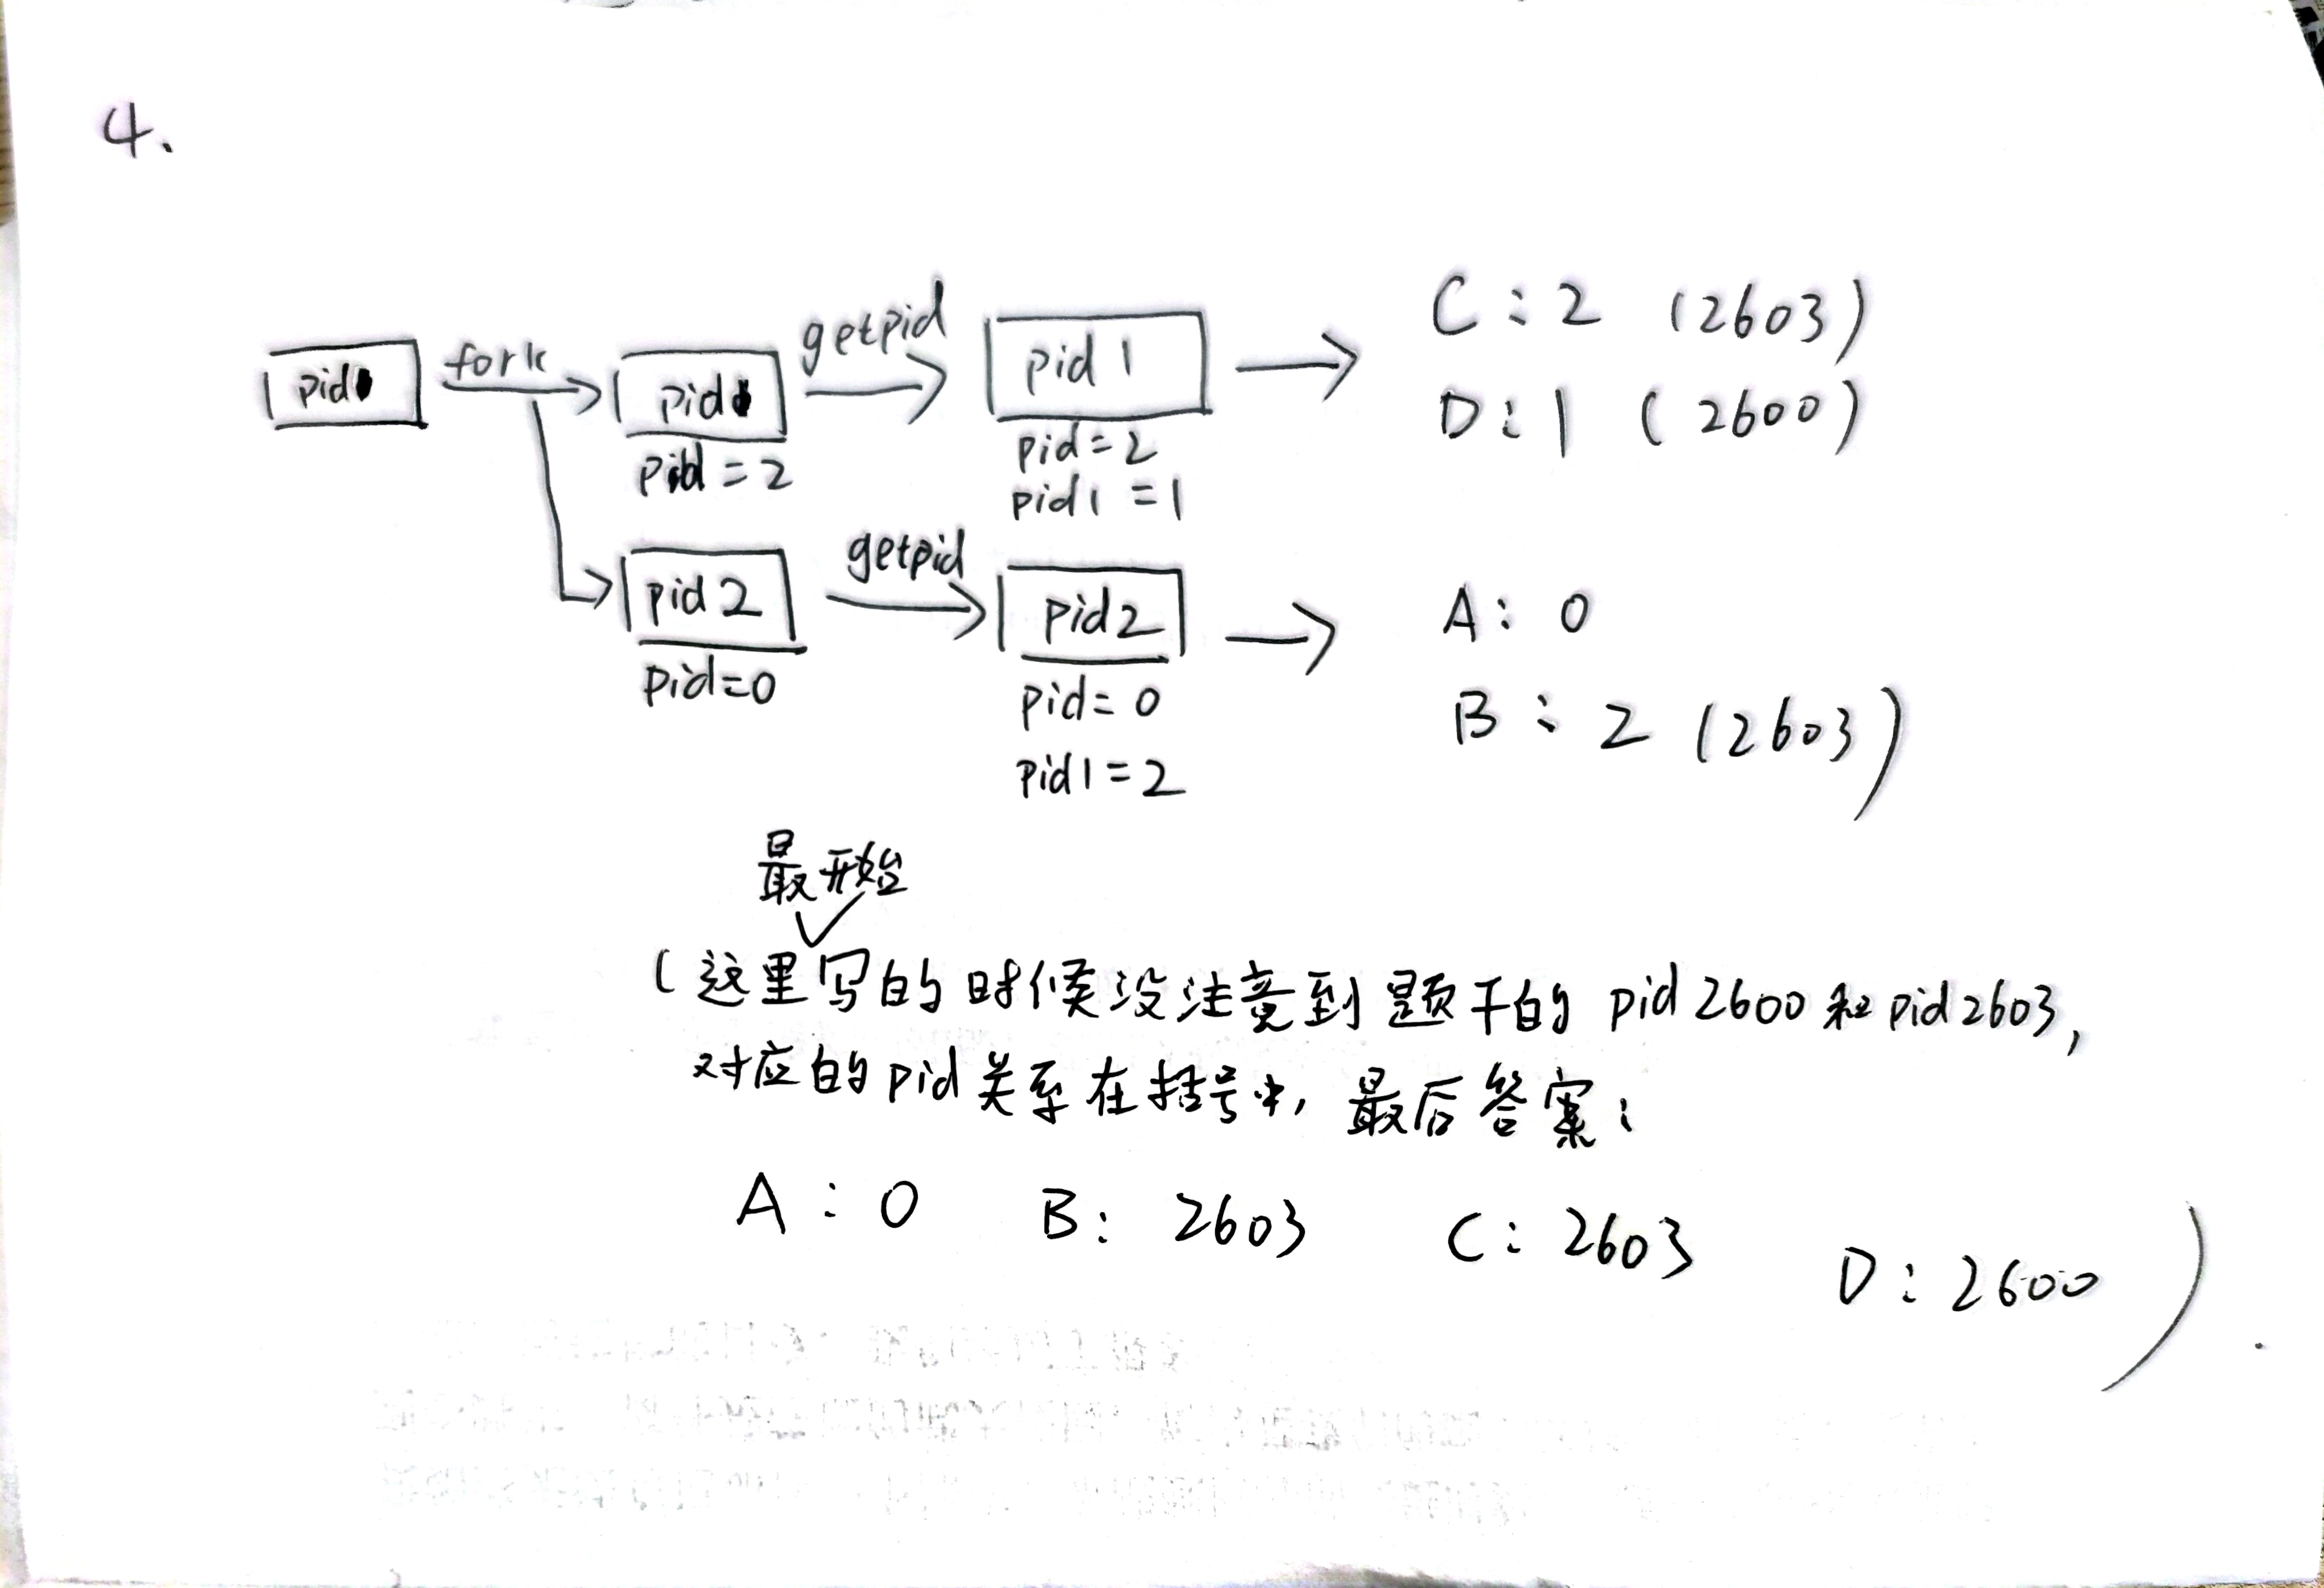 4.
C: 2 (2603)
D: 1 (2600)
pid fork pid getpid pid 1
pid = 2
pid = 2
pid1 = 1
getpid
pid 2 pid 2
pid=0
pid= 0
pid1 = 2
A: 0
B: 2 (2603)
最开始
(这里写的时候没注意到题干的 pid 2600 和 pid 2603,
对应的 pid 关系在括号中, 最后答案:
A: 0 B: 2603 C: 2603 D: 2600)